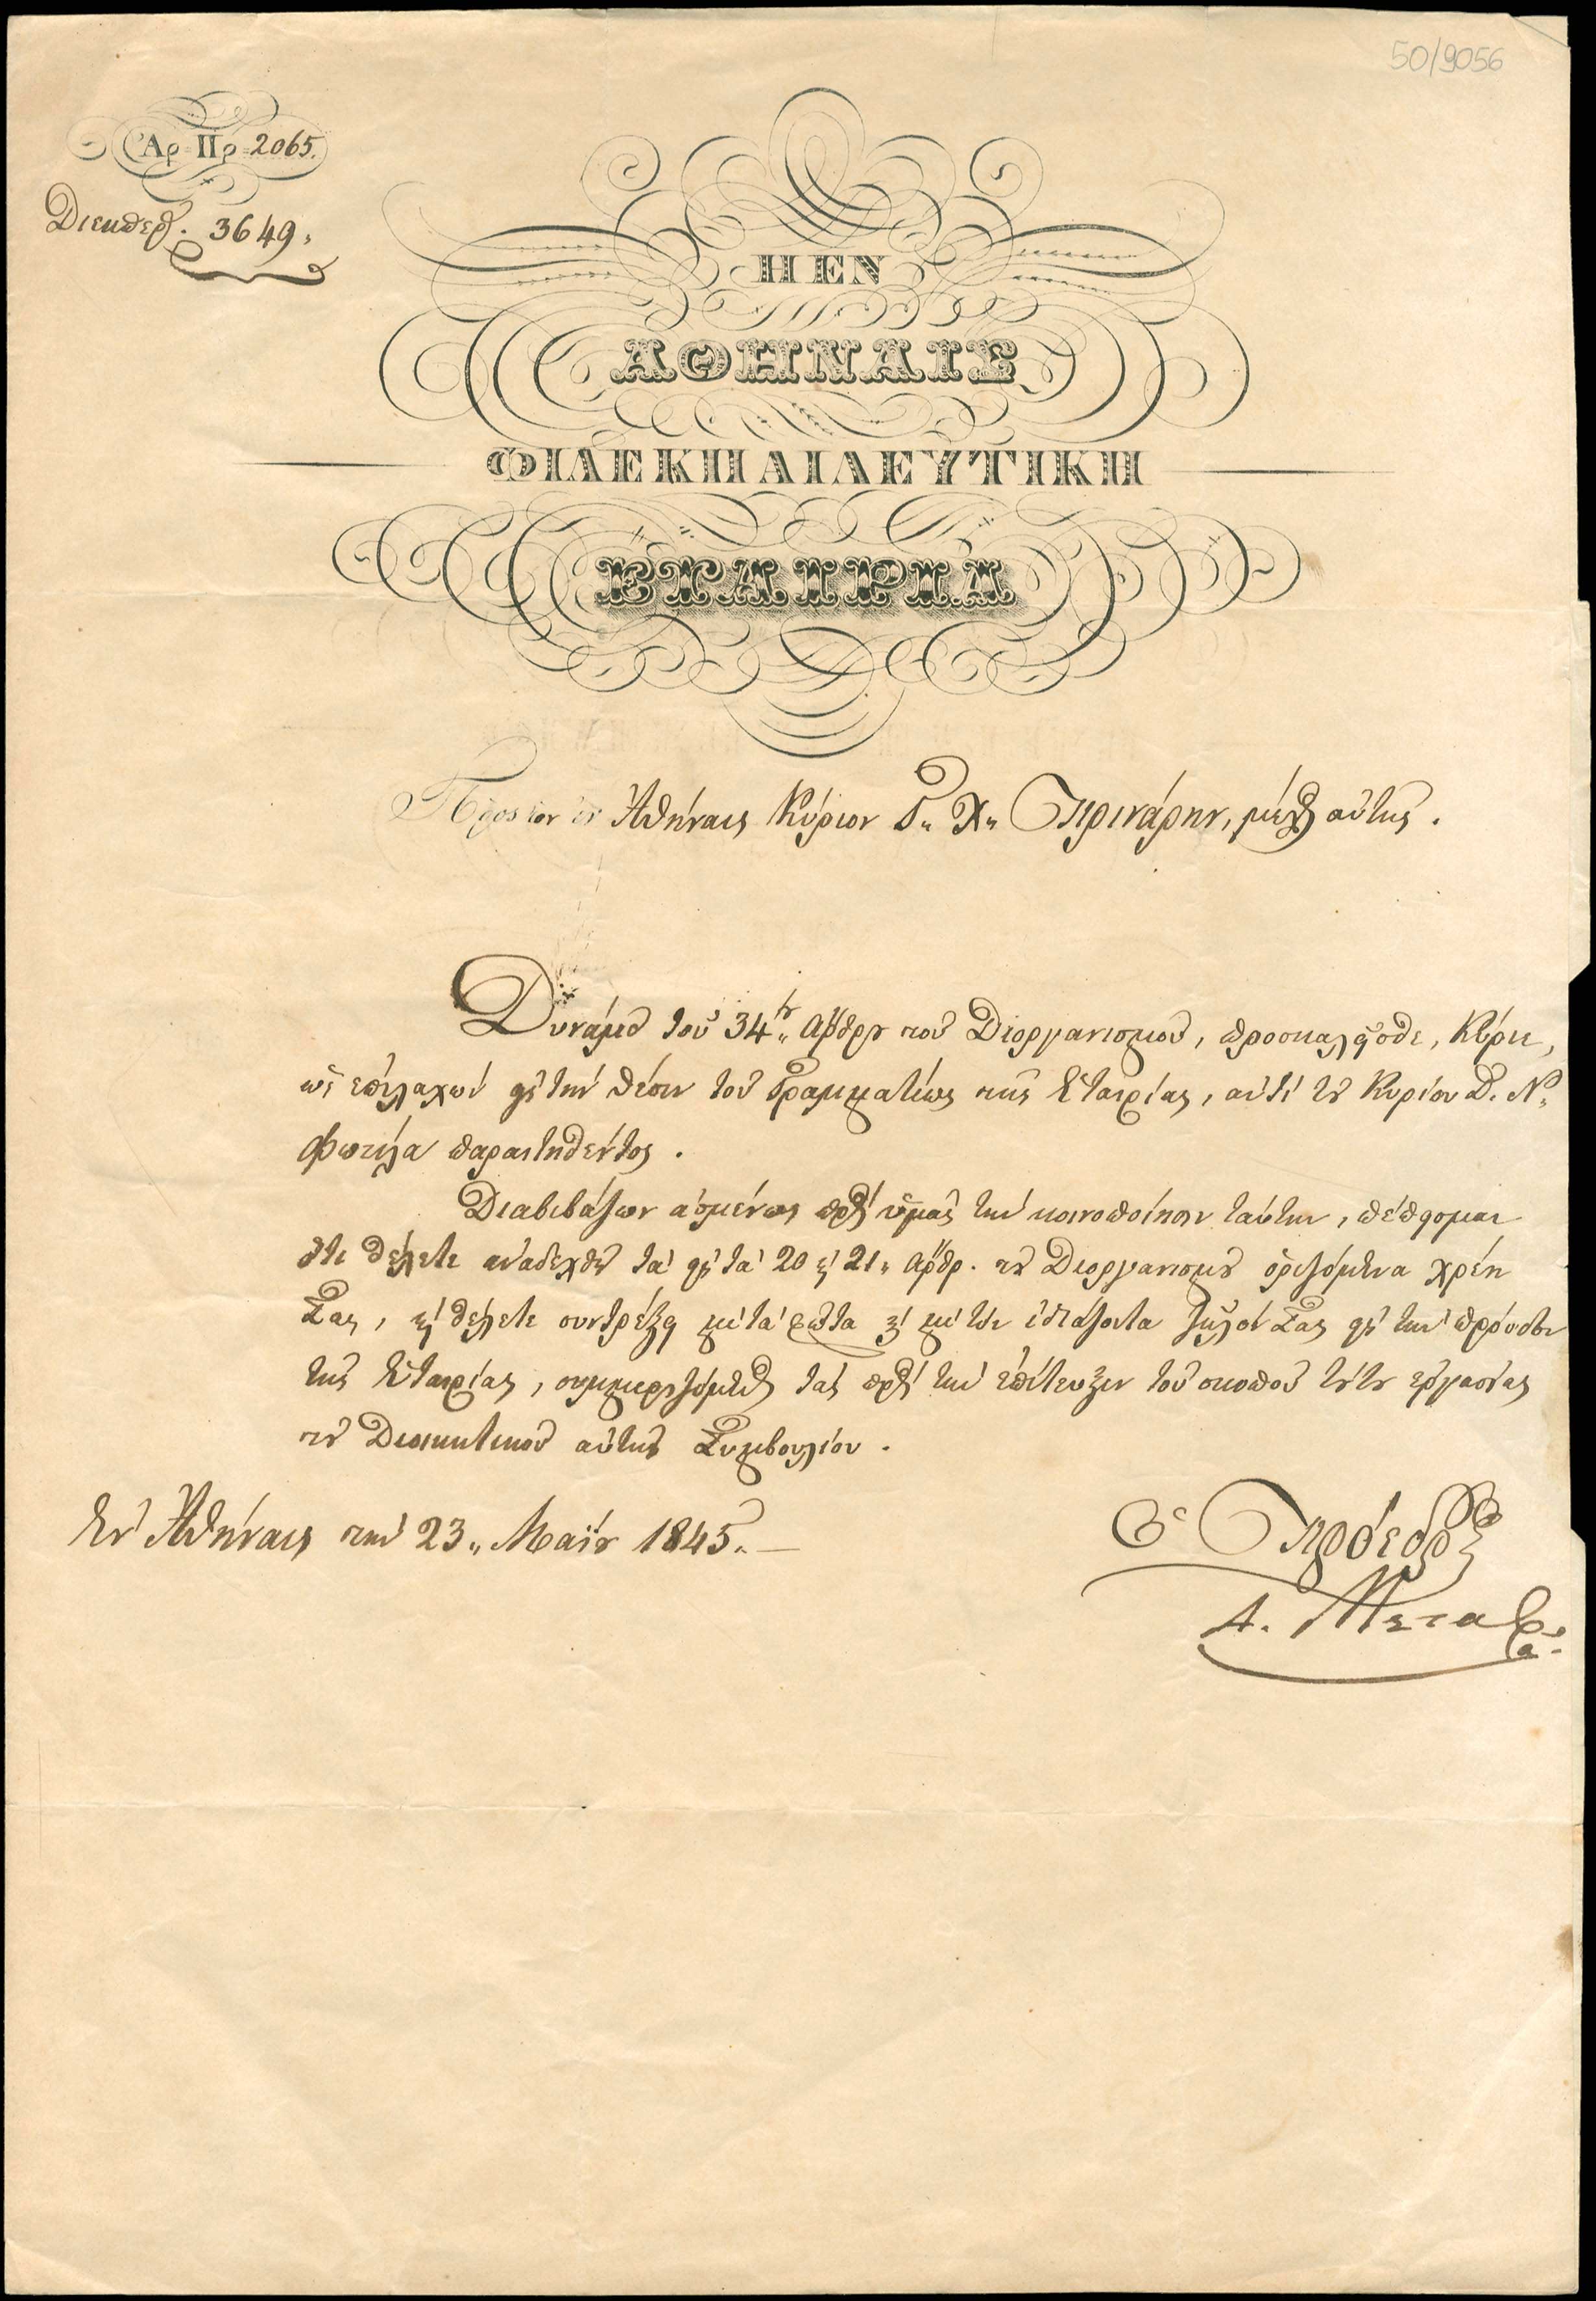 50/9056
Ἀρ Πρ 2065.
Διεκπερ. 3649.
Η ΕΝ
ΑΘΗΝΑΙΣ
ΦΙΛΕΚΠΑΙΔΕΥΤΙΚΗ
ΕΤΑΙΡΙΑ
Πρὸς τὸν ἐν Ἀθήναις Κύριον Γ. Χ. Πρινάρην, μέλος αὐτῆς.
Δυνάμει τοῦ 34ου ἄρθρου τοῦ Διοργανισμοῦ, προσκαλεῖσθε, Κύριε,
ὡς ἐπιλαχὼν εἰς τὴν θέσιν τοῦ Γραμματέως τῆς Ἑταιρίας, ἀντὶ τοῦ Κυρίου Δ. Ν.
Φωτίλα παραιτηθέντος.
Διαβιβάζων ἀσμένως πρὸς ὑμᾶς τὴν κοινοποίησιν ταύτην, πέπεισμαι
ὅτι θέλετε ἀναδεχθῆ τὰ εἰς τὰ 20 καὶ 21 ἄρθρ. τοῦ Διοργανισμοῦ ὁριζόμενα χρέη
Σας, καὶ θέλετε συντρέξει μὲ τὰ φῶτα καὶ μὲ τὸν ζῆλόν Σας εἰς τὴν πρόοδον
τῆς Ἑταιρίας, συμμεριζόμενος τὰς πρὸς τὴν ἐπίτευξιν τοῦ σκοποῦ τούτου ἐργασίας
τοῦ Διοικητικοῦ αὐτῆς Συμβουλίου.
Ἐν Ἀθήναις τὴν 23 Μαΐου 1845.
Ὁ Πρόεδρος
Α. Μεταξᾶ